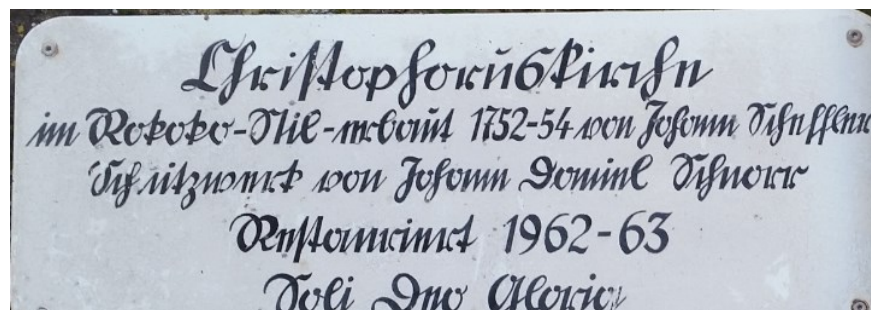 Christophoruskirche
im Rokoko-Stil-erbaut 1752-54 von Johann Scheffler
Schnitzwerk von Johann Daniel Schnorr
Restauriert 1962-63
Soli Deo Gloria